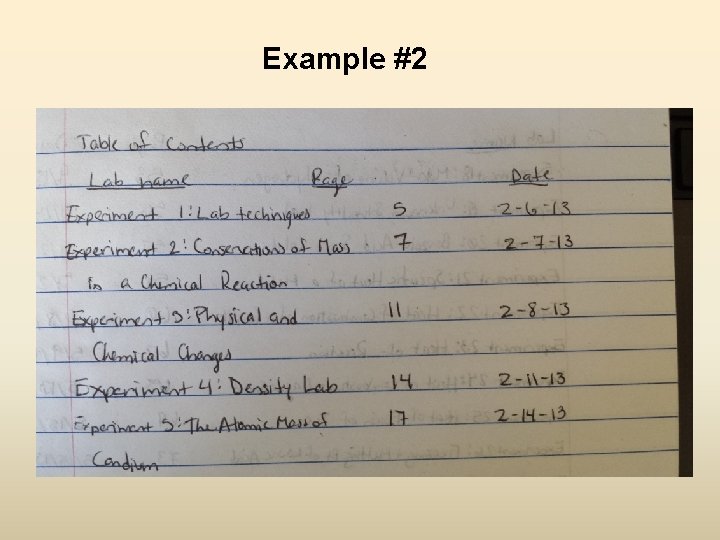 Example #2
Table of Contents
Lab name Page Date
Experiment 1: Lab techniques 5 2-6-13
Experiment 2: Conservations of Mass 7 2-7-13
in a Chemical Reaction
Experiment 3: Physical and 11 2-8-13
Chemical Changes
Experiment 4: Density Lab 14 2-11-13
Experiment 5: The Atomic Mass of 17 2-14-13
Candium